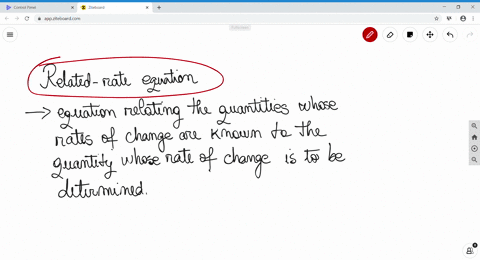 Control Panel
Ziteboard
app.ziteboard.com
Related-rate equation
→ equation relating the quantities whose
rates of change are known to the
quantity whose rate of change is to be
determined.